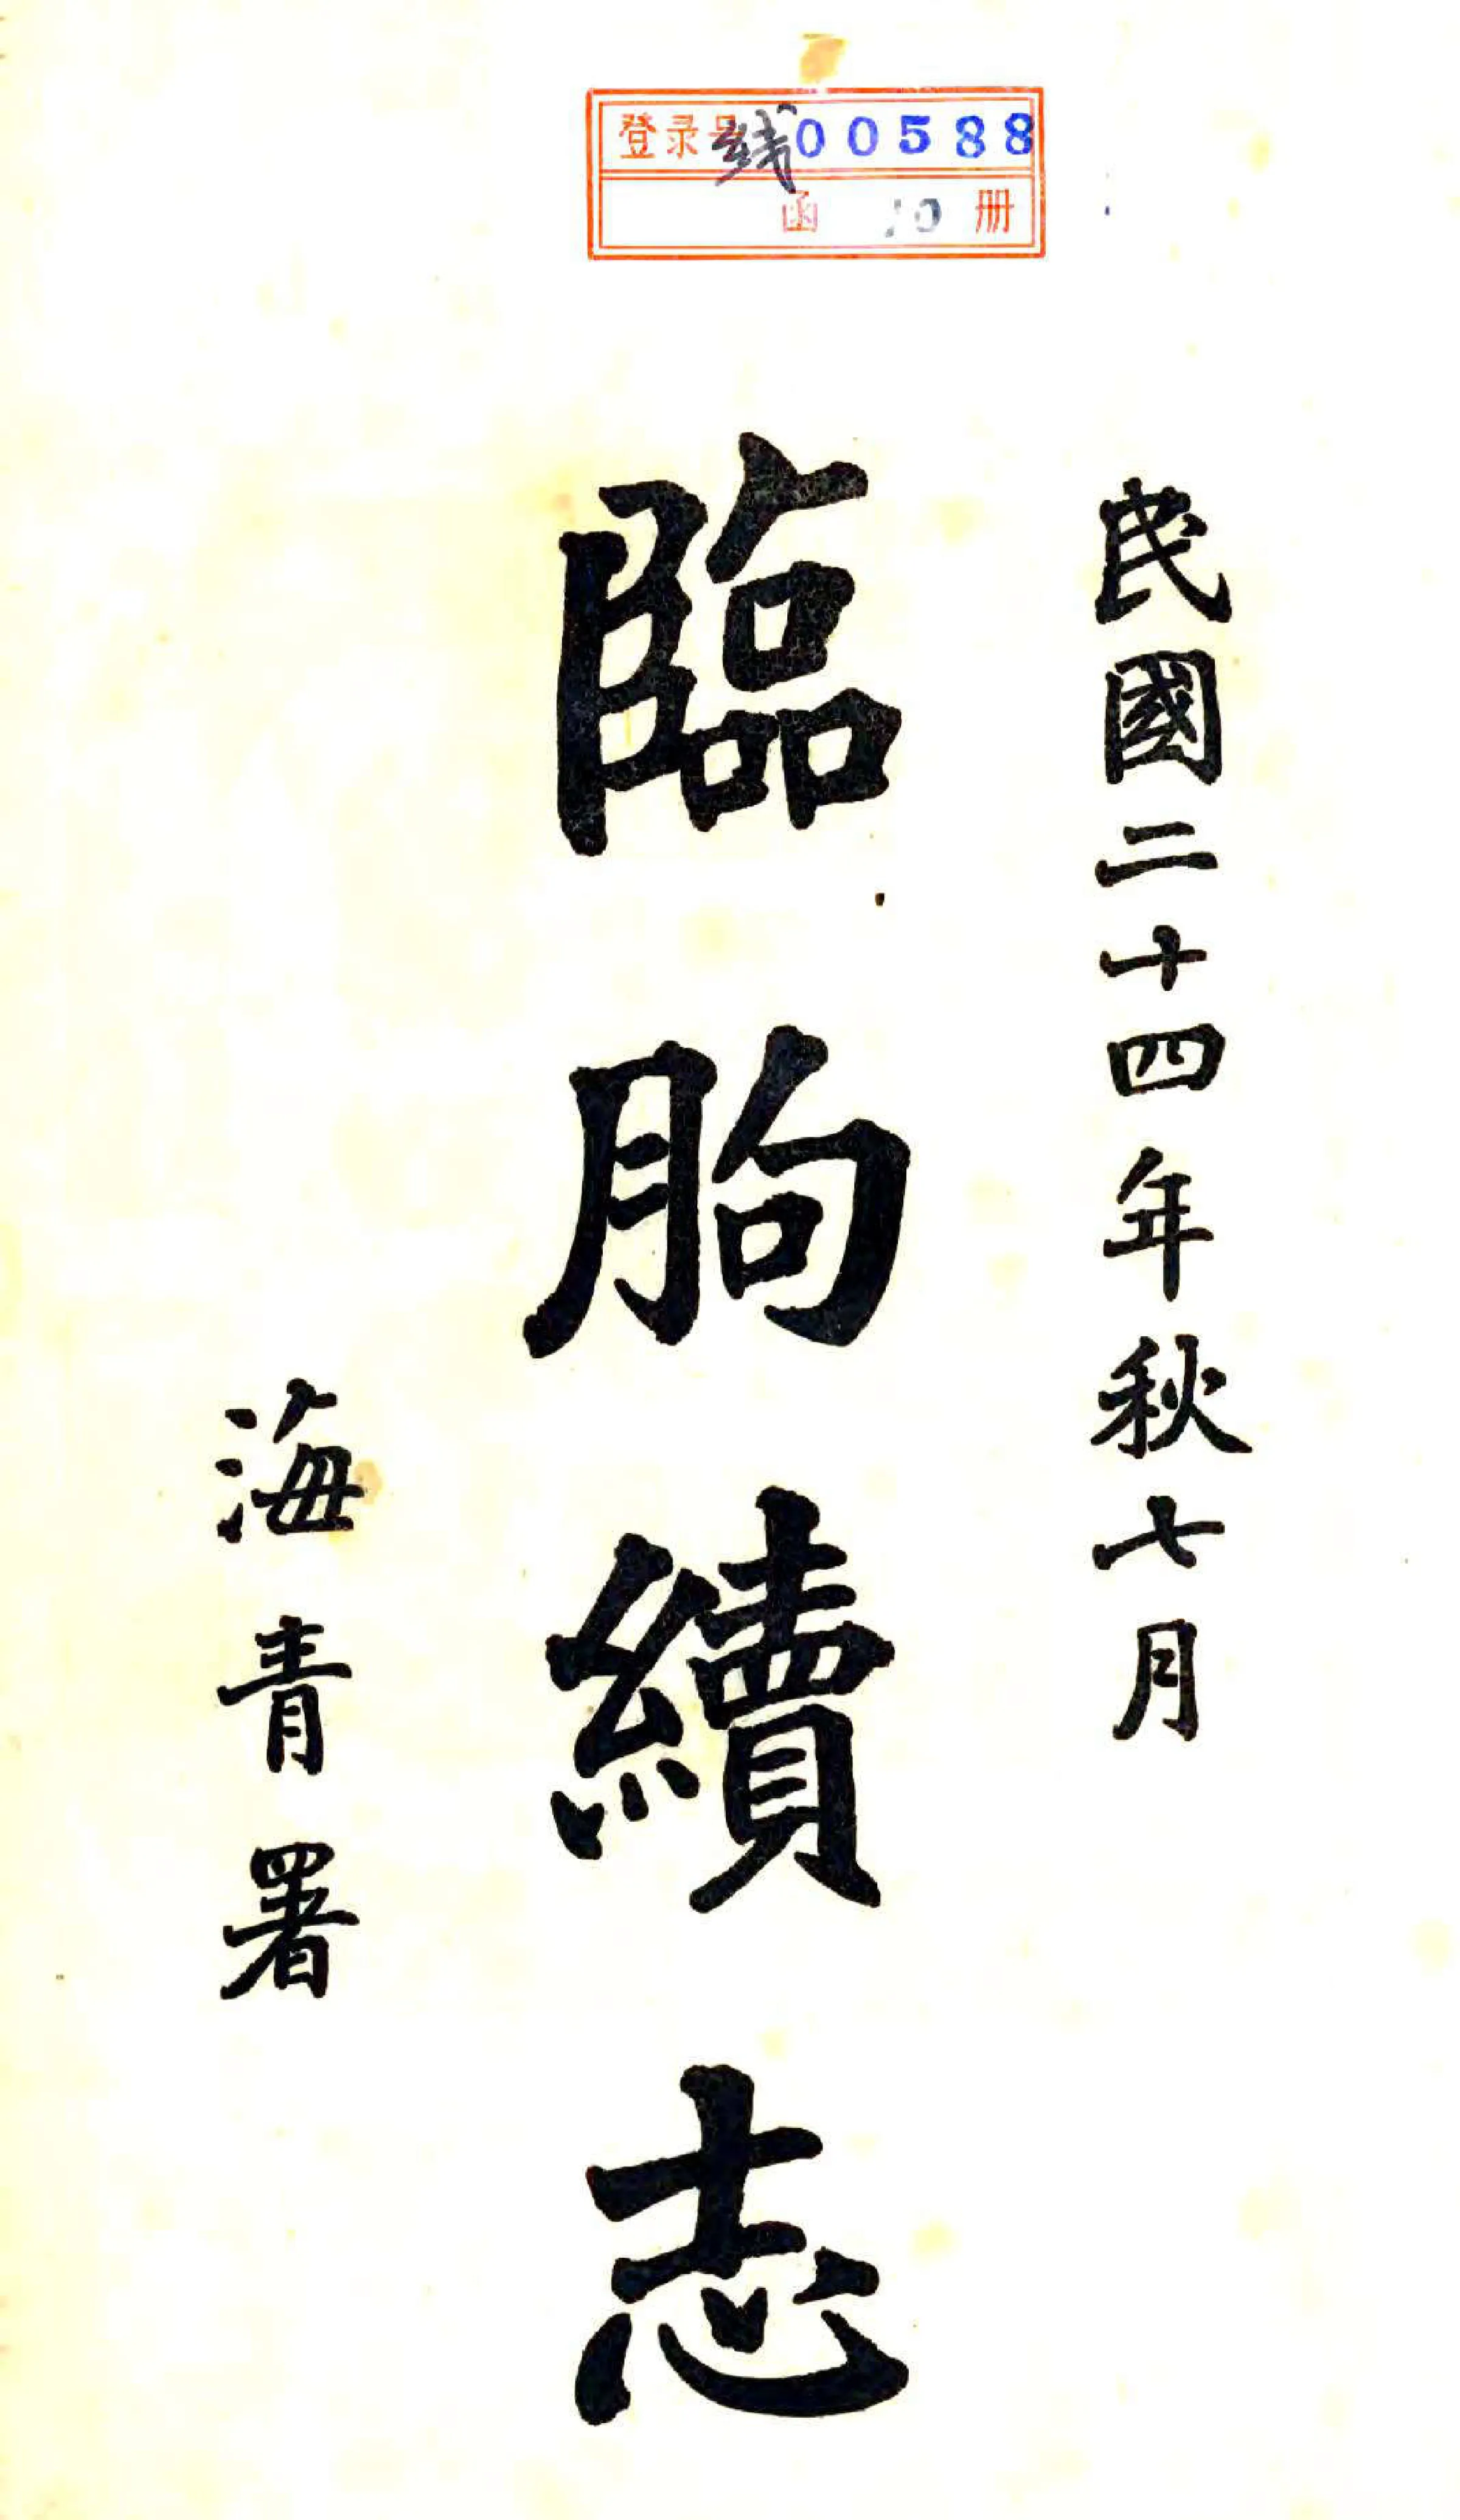 登录号 线00588
函 10 册
民國二十四年秋七月
臨朐續志
海青署